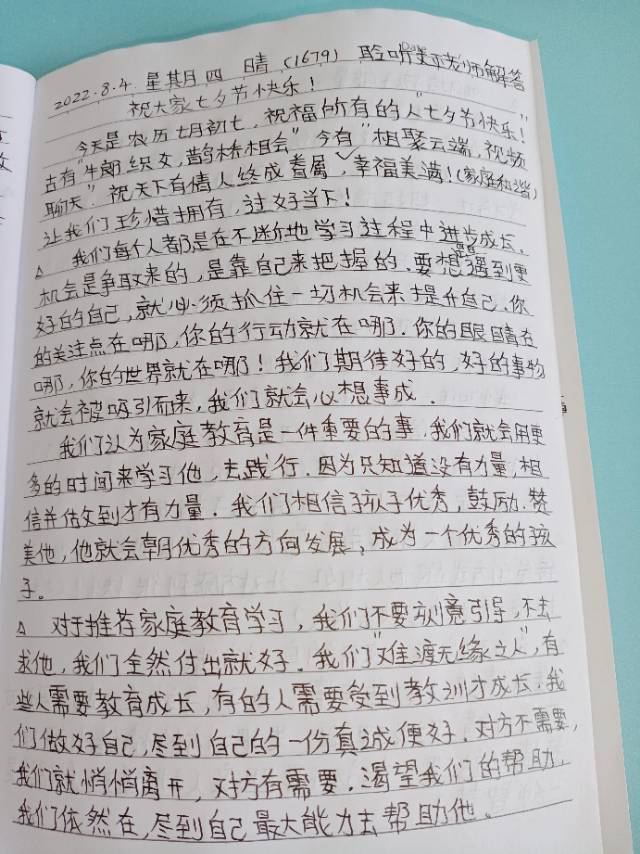 2022.8.4. 星期四 晴 (1679) 聆听老师解答
祝大家七夕节快乐！
今天是农历七月初七，祝福所有的人"七夕节快乐！"
古有"牛朗织女，鹊桥相会"今有"相聚云端，视频
聊天"祝天下有情人终成眷属，幸福美满！(家庭和谐)
让我们珍惜拥有，过好当下！
△ 我们每个人都是在不断地学习过程中进步成长。
机会是争取来的，是靠自己来把握的．要想遇到更
好的自己，就必须抓住一切机会来提升自己．你
的关注点在哪，你的行动就在哪．你的眼睛在
哪，你的世界就在哪！我们期待好的，好的事物
就会被吸引而来，我们就会心想事成．
我们认为家庭教育是一件重要的事．我们就会用更
多的时间来学习他，去践行．因为只知道没有力量，相
信并做到才有力量．我们相信孩子优秀，鼓励．赞
美他，他就会朝优秀的方向发展，成为一个优秀的孩
子。
△ 对于推荐家庭教育学习，我们不要刻意引导，不去
求他，我们全然付出就好．我们"难渡无缘之人"，有
些人需要教育成长，有的人需要受到教训才成长．我
们做好自己，尽到自己的一份真诚便好．对方不需要，
我们就悄悄离开，对方有需要．渴望我们的帮助，
我们依然在，尽到自己最大能力去帮助他。